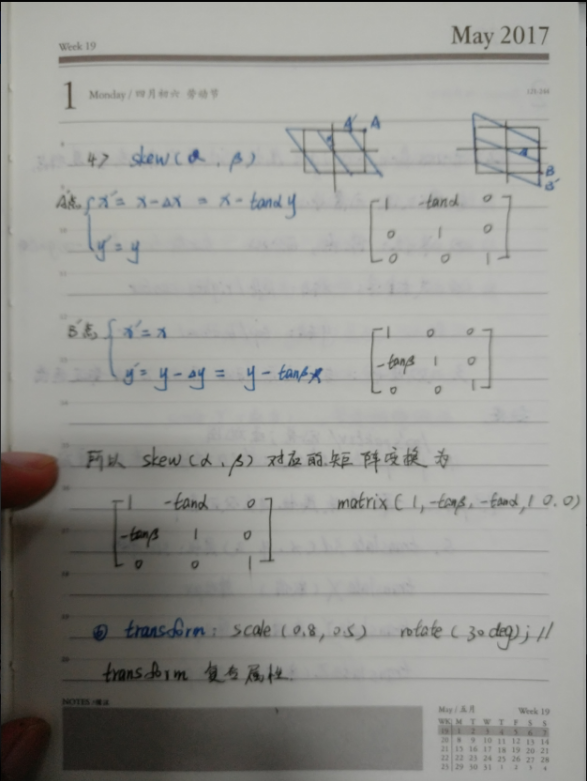 Week 19
May 2017
1 Monday / 四月初六 劳动节
121-244
A' A
4> skew(α, β)
A点 { x' = x - Δx = x - tanα y
y' = y
[ 1 -tanα 0
0 1 0
0 0 1 ]
B
B'
B点 { x' = x
y' = y - Δy = y - tanβ x
[ 1 0 0
-tanβ 1 0
0 0 1 ]
所以 skew(α, β) 对应的矩阵变换为
[ 1 -tanα 0
-tanβ 1 0
0 0 1 ]
matrix(1, -tanβ, -tanα, 1 0.0)
⑤ transform: scale(0.8, 0.5) rotate(30deg); //
transform 复合属性
NOTES /备忘
May / 五月 Week 19
WK M T W T F S S
18 1 2 3 4 5 6 7
19 8 9 10 11 12 13 14
20 15 16 17 18 19 20 21
21 22 23 24 25 26 27 28
22 29 30 31 1 2 3 4